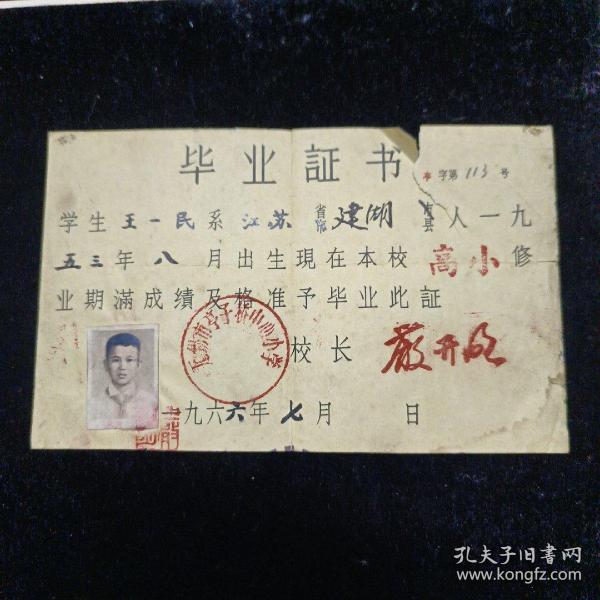 毕业証书
字第113号
学生王一民系江苏省建湖县人一九
五三年八月出生現在本校高小修
业期滿成績及格准予毕业此証
校长 嚴开明
一九六六年七月 日
孔夫子旧书网
www.kongfz.com